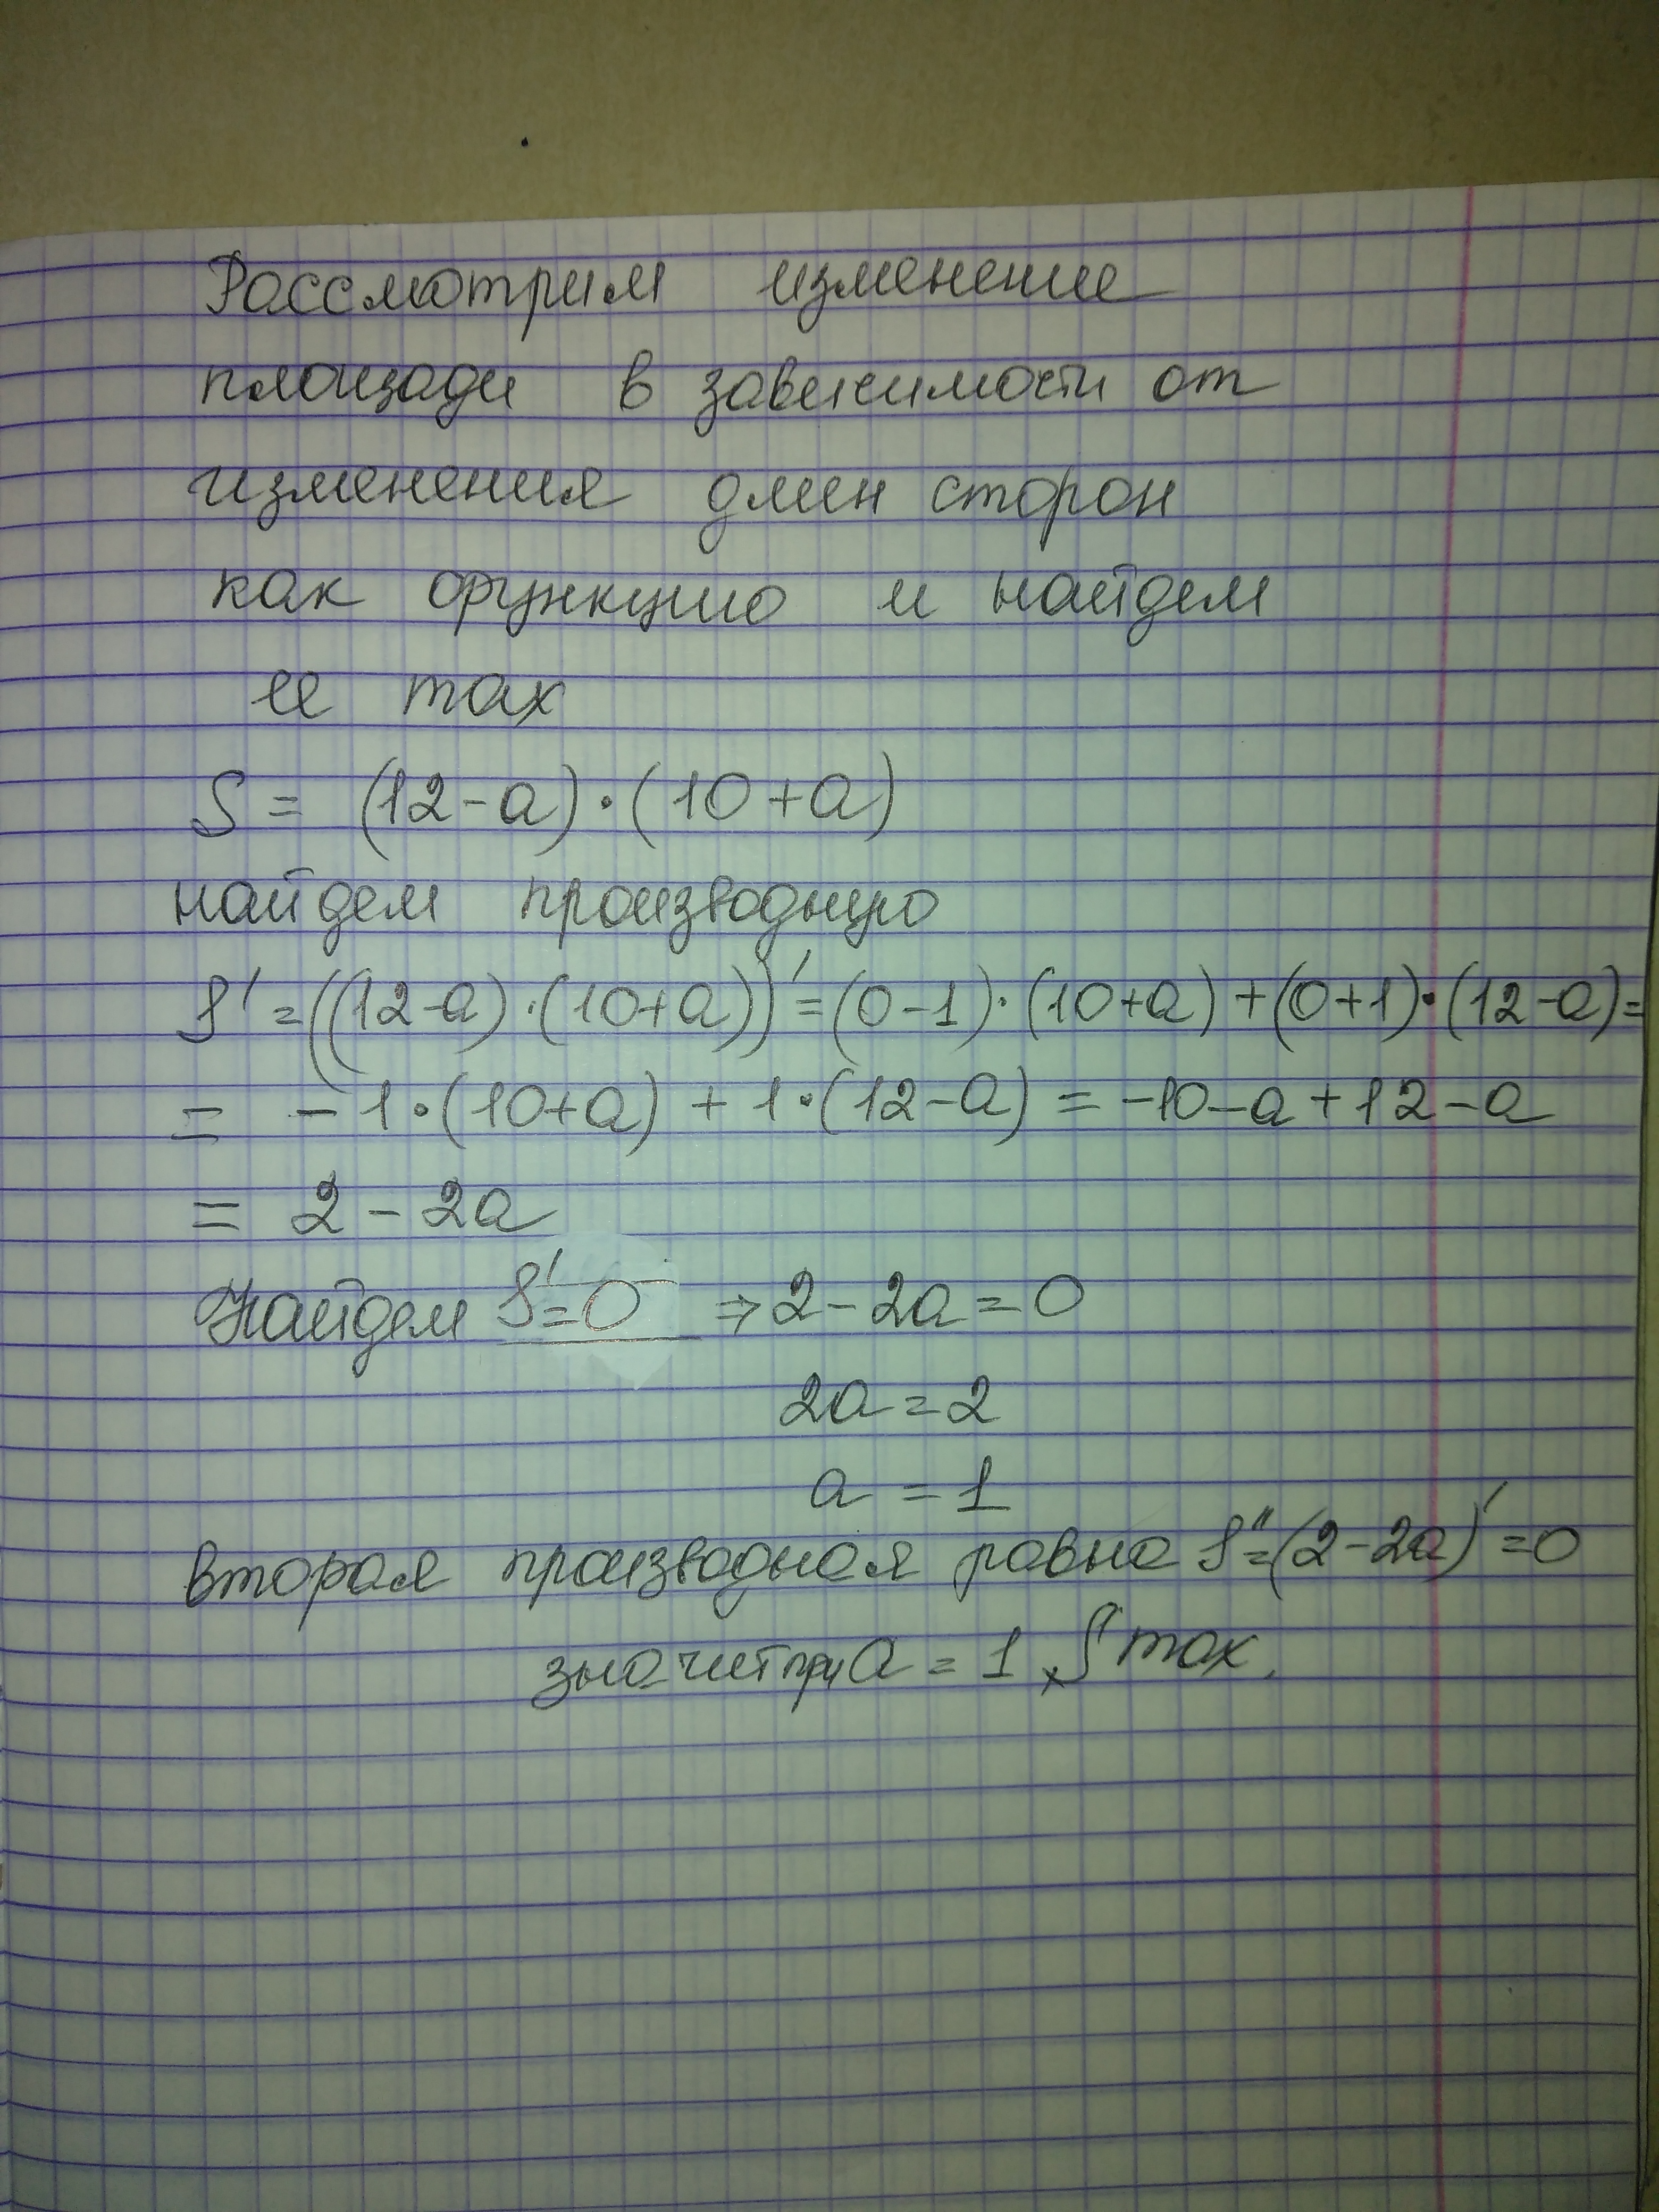 Рассмотрим изменение
площади в зависимости от
изменения длин сторон
как функцию и найдем
ее max
S = (12-a)·(10+a)
найдем производную
S' = ((12-a)·(10+a))' = (0-1)·(10+a)+(0+1)·(12-a)=
= -1·(10+a)+1·(12-a) = -10-a+12-a
= 2-2a
Найдем S'=0 ⇒ 2-2a=0
2a=2
a=1
вторая производная равна S''=(2-2a)'=0
значит при a=1, S max.